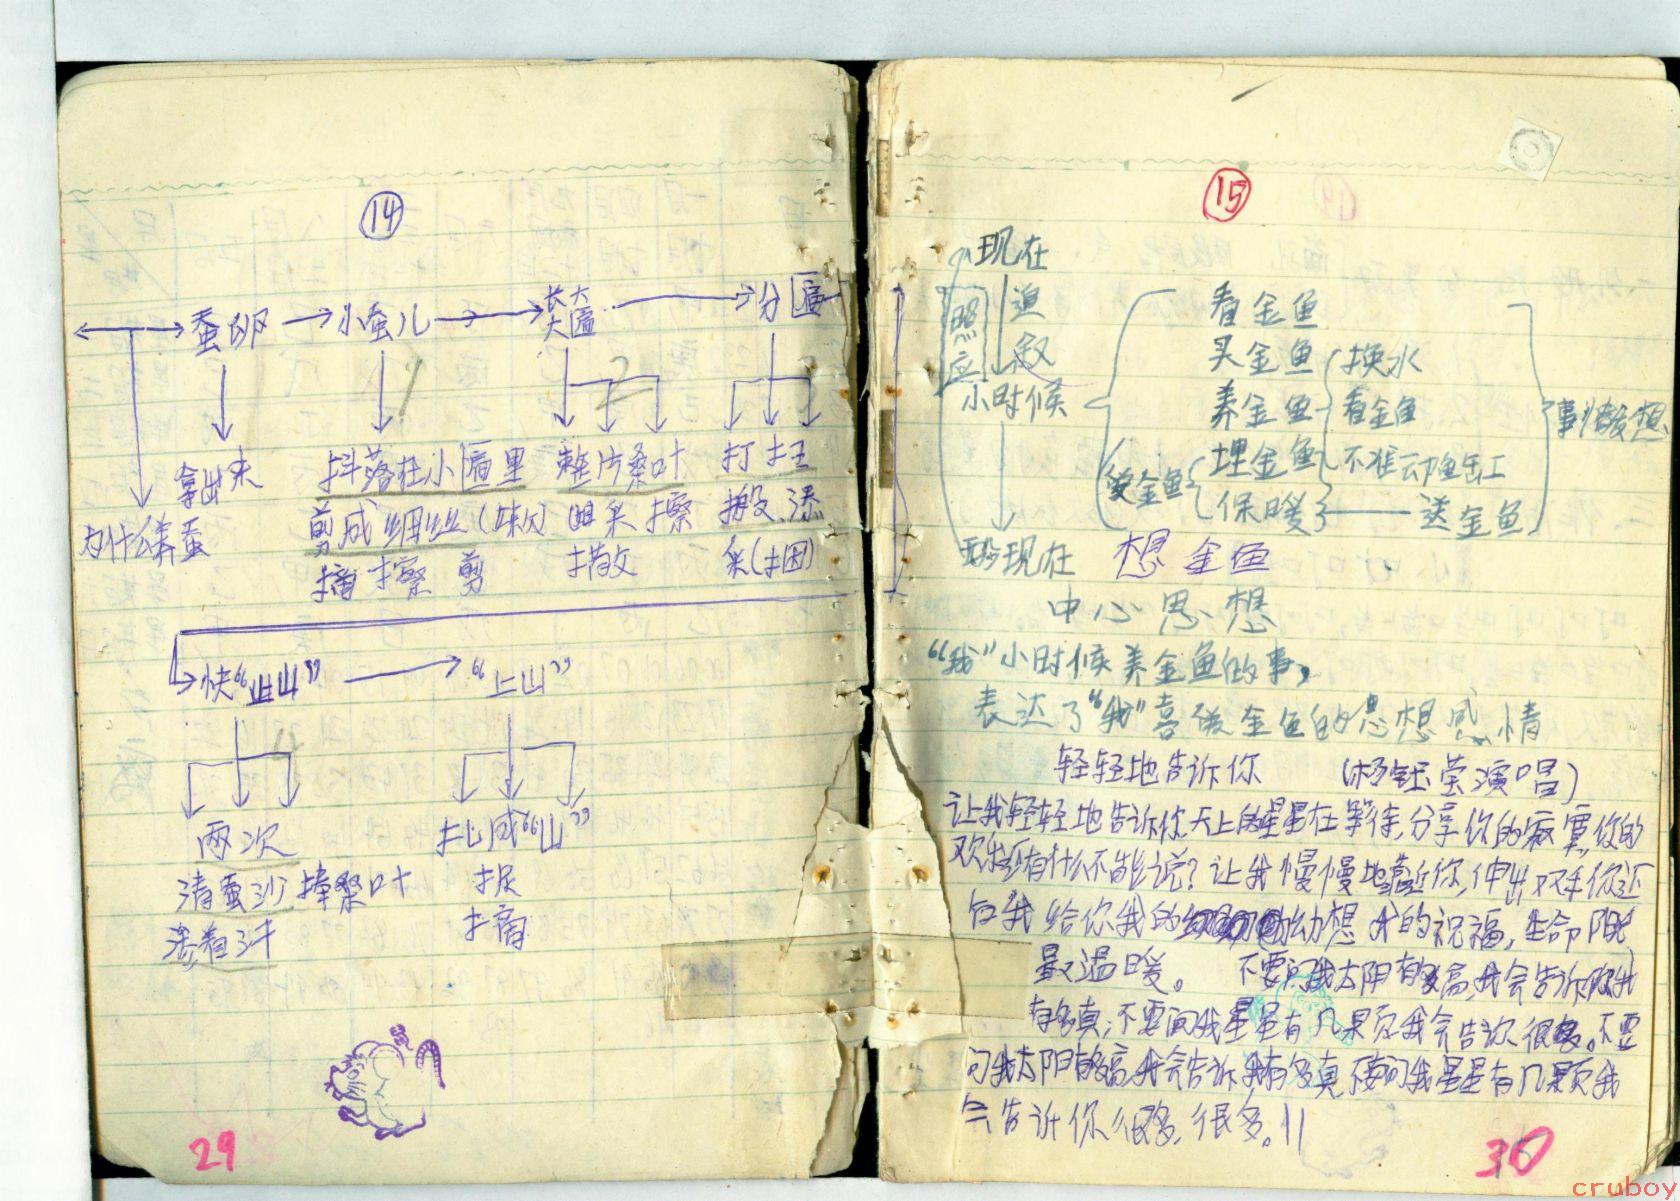 14
蚕卵 小蚕儿 长大 大匾 分匾
拿出来
为什么养蚕
抖落在小匾里
剪成细丝
摘 擦 剪
整片桑叶
采 擦
撒
打扫
搬 添
采
快“上山” “上山”
两次
清蚕沙 择桑叶
添着三斗
扎成“山”
捉
摘
29
15
现在
追叙
照应
小时候
看金鱼
买金鱼
养金鱼
埋金鱼
保暖
爱金鱼
换水
看金鱼
不准动鱼缸
送金鱼
事情发展
现在 想金鱼
中心思想
“我”小时候养金鱼的事，
表达了“我”喜爱金鱼的思想感情
轻轻地告诉你 （杨钰莹演唱）
让我轻轻地告诉你天上的星星在等待，分享你的寂寞，你的
欢乐还有什么不能说？让我慢慢地靠近你，伸出双手你还
有我给你我的幻想我的祝福，生命阳光
最温暖。 不要问我太阳有多高，我会告诉你我
有多真，不要问我星星有几颗我会告诉你很多。不要
问我太阳有多高，我会告诉我有多真不要问我星星有几颗我
会告诉你很多，很多。
30
cruboy